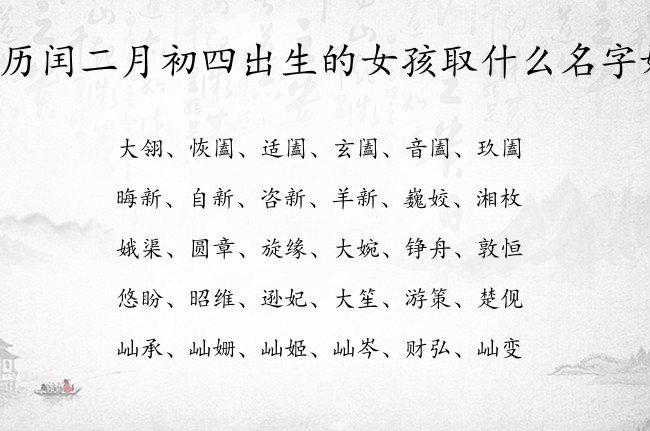 历闰二月初四出生的女孩取什么名字好
大翎、恢阖、适阖、玄阖、音阖、玖阖
晦新、自新、咨新、羊新、巍姣、湘枚
娥渠、圆章、旋缘、大婉、铮舟、敦恒
悠盼、昭维、逊妃、大笙、游策、楚伣
屾承、屾姗、屾姬、屾岑、财弘、屾变